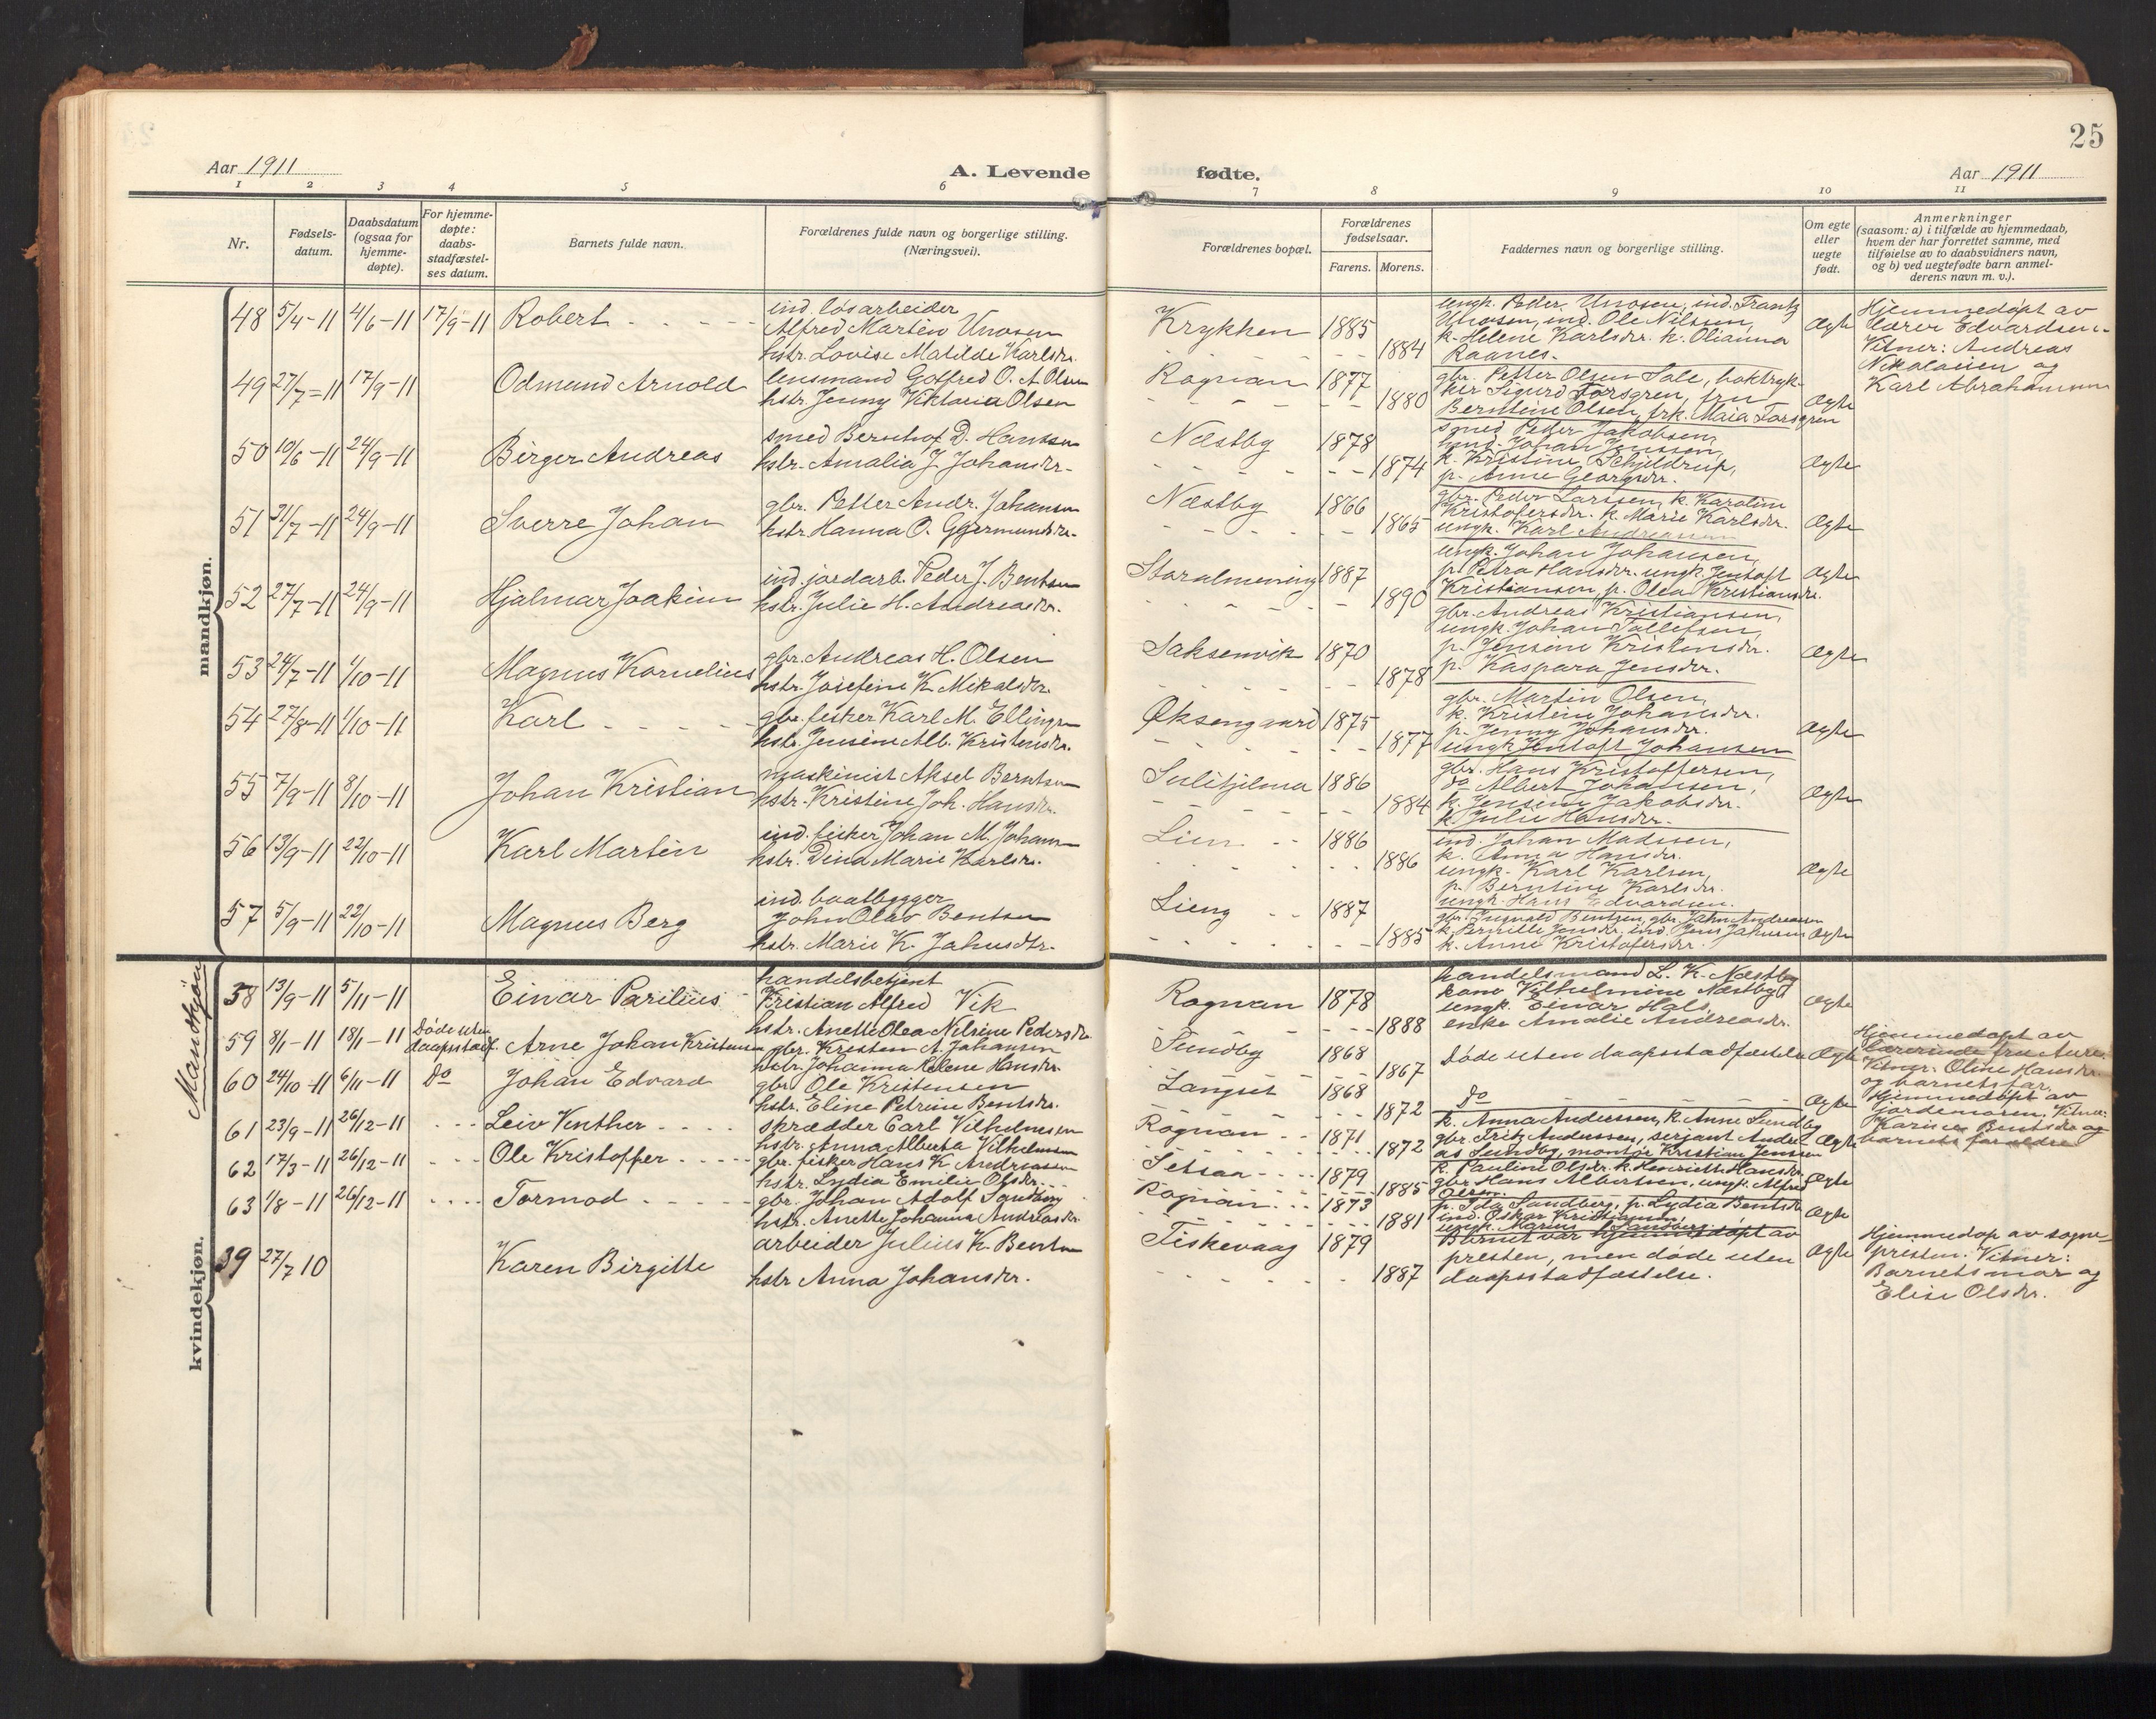 25
Aar 1911
A. Levende
fødte.
Aar 1911
1 2 3 4 5 6 7 8 9 10 11
Nr.
Fødsels-
datum.
Daabsdatum
(ogsaa for
hjemme-
døpte).
For hjemme-
døpte:
daabs-
stadfæstel-
ses datum.
Barnets fulde navn.
Forældrenes fulde navn og borgerlige stilling.
(Næringsvei).
Forældrenes bopæl.
Forældrenes
fødselsaar.
Farens. Morens.
Faddernes navn og borgerlige stilling.
Om egte
eller
uegte
født.
Anmerkninger
(saasom: a) i tilfælde av hjemmedaab,
hvem der har forrettet samme, med
tilføielse av to daabsvidners navn,
og b) ved uegtefødte barn anmel-
derens navn m. v.).
mandkjøn.
48 5/4-11 4/6-11 17/9-11 Robert
ind. løsarbeider
Alfred Martin Unosen
hstr. Lovise Matilde Karlsdr.
Krykken 1885 1884
ungk. Peder Unosen, ind. Frantz
Unosen, ind. Ole Nilssen,
k. Helene Karlsdr. k. Olianna
Raanes.
Ægte
Hjemmedøpt av
lærer Edvardsen.
Vitner: Andreas
Nikolaisen og
Karl Abrahamsen
49 27/7-11 17/9-11 Odmund Arnold
lensmand Gotfred O. A. Olsen
hstr. Jenny Viktoria Olsen
Rognan 1877 1880
gbr. Petter Olsen Sale, boktryk-
ker Sigurd Forsgren, fru
Berntine Olsen, frk. Maia Forsgren
Ægte
50 10/6-11 24/9-11 Birger Andreas
smed Bernhof D. Hansen
hstr. Amalia J. Johansdr.
Næstby 1878 1874
smed Peder Jakobsen,
hmd. Johan Jenssen,
k. Kristine Schjeldrup,
p. Anne Georgsdr.
Ægte
51 31/7-11 24/9-11 Sverre Johan
gbr. Petter Andr. Johansen
hstr. Hanna O. Gjermundsdr.
Næstby 1866 1865
gbr. Peder Larssen, k. Karoline
Kristofersdr. k. Marie Karlsdr.
ungk. Karl Andreassen
Ægte
52 27/7-11 24/9-11 Hjalmar Joakim
ind. jordarb. Peder J. Bentsen
hstr. Julie H. Andreasdr.
Storalmening 1887 1890
ungk. Johan Johansen,
p. Petra Hansdr. ungk. Jentoft
Kristiansen, p. Olea Kristiansdr.
Ægte
53 24/7-11 1/10-11 Magnus Kornelius
gbr. Andreas H. Olsen
hstr. Josefine K. Mikalsdr.
Saksenvik 1870 1878
gbr. Andreas Kristiansen,
ungk. Johan Tollefsen,
p. Jensine Kristensdr.
p. Kaspara Jensdr.
Ægte
54 27/8-11 1/10-11 Karl
gbr. fisker Karl M. Ellingsen
hstr. Jensine Alb. Kristensdr.
Øksengaard 1875 1877
gbr. Martin Olsen,
k. Kristine Johansdr.
p. Jenny Johansdr.
ungk. Jentoft Johansen
Ægte
55 7/9-11 8/10-11 Johan Kristian
maskinist Aksel Berntsen
hstr. Kristine Joh. Hansdr.
Sulitjelma 1886 1884
gbr. Hans Kristoffersen,
do Albert Johansen,
k. Jensine Jakobsdr.
k. Julie Hansdr.
Ægte
56 13/9-11 22/10-11 Karl Martin
ind. fisker Johan M. Johansen
hstr. Dina Marie Karlsdr.
Lien 1886 1886
ind. Johan Madsen,
k. Anna Hansdr.
ungk. Karl Karlsen,
p. Berntine Karlsdr.
ungk. Hans Edvardsen.
Ægte
57 5/9-11 22/10-11 Magnus Berg
ind. baatbygger
John Olav Bentsen
hstr. Marie K. Jahnsdtr.
Lieng 1887 1885
gbr. Ingvald Bentsen, gbr. Jahn Andreassen
k. Pernille Jonsdr. ind. Jens Jahnsen
k. Anne Kristofersdr.
Ægte
Mandkjøn
58 13/9-11 5/11-11 Einar Parilius
handelsbetjent
Kristian Alfred Vik
hstr. Anette Olea Nilsine Pedersdr.
Rognan 1878 1888
handelsmand L. K. Næstby
kone Vilhelmine Næstby
ungk. Einar Hals,
enke Amalie Andreasdr.
Ægte
59 8/1-11 18/1-11 Døde uten
daapsstadf. Arne Johan Kristensen
gbr. Kristen A. Johansen
hstr. Johanna Helene Hansdr.
Sundby 1868 1867
Døde uten daapsstadfæstelse Ægte
Hjemmedøpt av
lærerinde fru Aure.
Vitner: Oline Hansdr.
og barnets far.
60 24/10-11 6/11-11 Do Johan Edvard
gbr. Ole Kristensen
hstr. Eline Petrine Bentsdr.
Langset 1868 1872
Do Ægte
Hjemmedøpt av
jordemoren. Vitner:
Karine Bentsdr. og
barnets forældre
61 23/9-11 26/12-11 Leiv Venther
skrædder Carl Vilhelmsen
hstr. Anna Alberta Vilhelmsen
Rognan 1871 1872
k. Anna Anderssen, k. Anne Sundby
gbr. Fritz Anderssen, serjant Andre-
as Sundby, montør Kristian Jenssen
Ægte
62 17/3-11 26/12-11 Ole Kristoffer
gbr. fisker Hans K. Andreassen
hstr. Lydia Emilie Olsdr.
Setsaa 1879 1885
k. Pauline Olsdr. k. Henriette Hansdr.
gbr. Hans Albertsen, ungk. Alfred
Olsen.
Ægte
63 1/8-11 26/12-11 Tormod
gbr. Johan Adolf Sandberg
hstr. Anette Johanna Andreasdr.
Rognan 1873 1881
p. Ida Sandberg, p. Lydia Bentsdr.
ind. Oskar Kristiansen,
ungk. Marius Sandberg.
Ægte
kvindekjøn.
39 27/7 10 Karen Birgitte
arbeider Julius K. Bentsen
hstr Anna Johansdr.
Fiskevaag 1879 1887
Barnet var hjemmedøpt av
presten, men døde uten
daapsstadfæstelse.
Ægte
Hjemmedøp av sogne-
presten. Vitner:
Barnets mor og
Elise Olsdr.